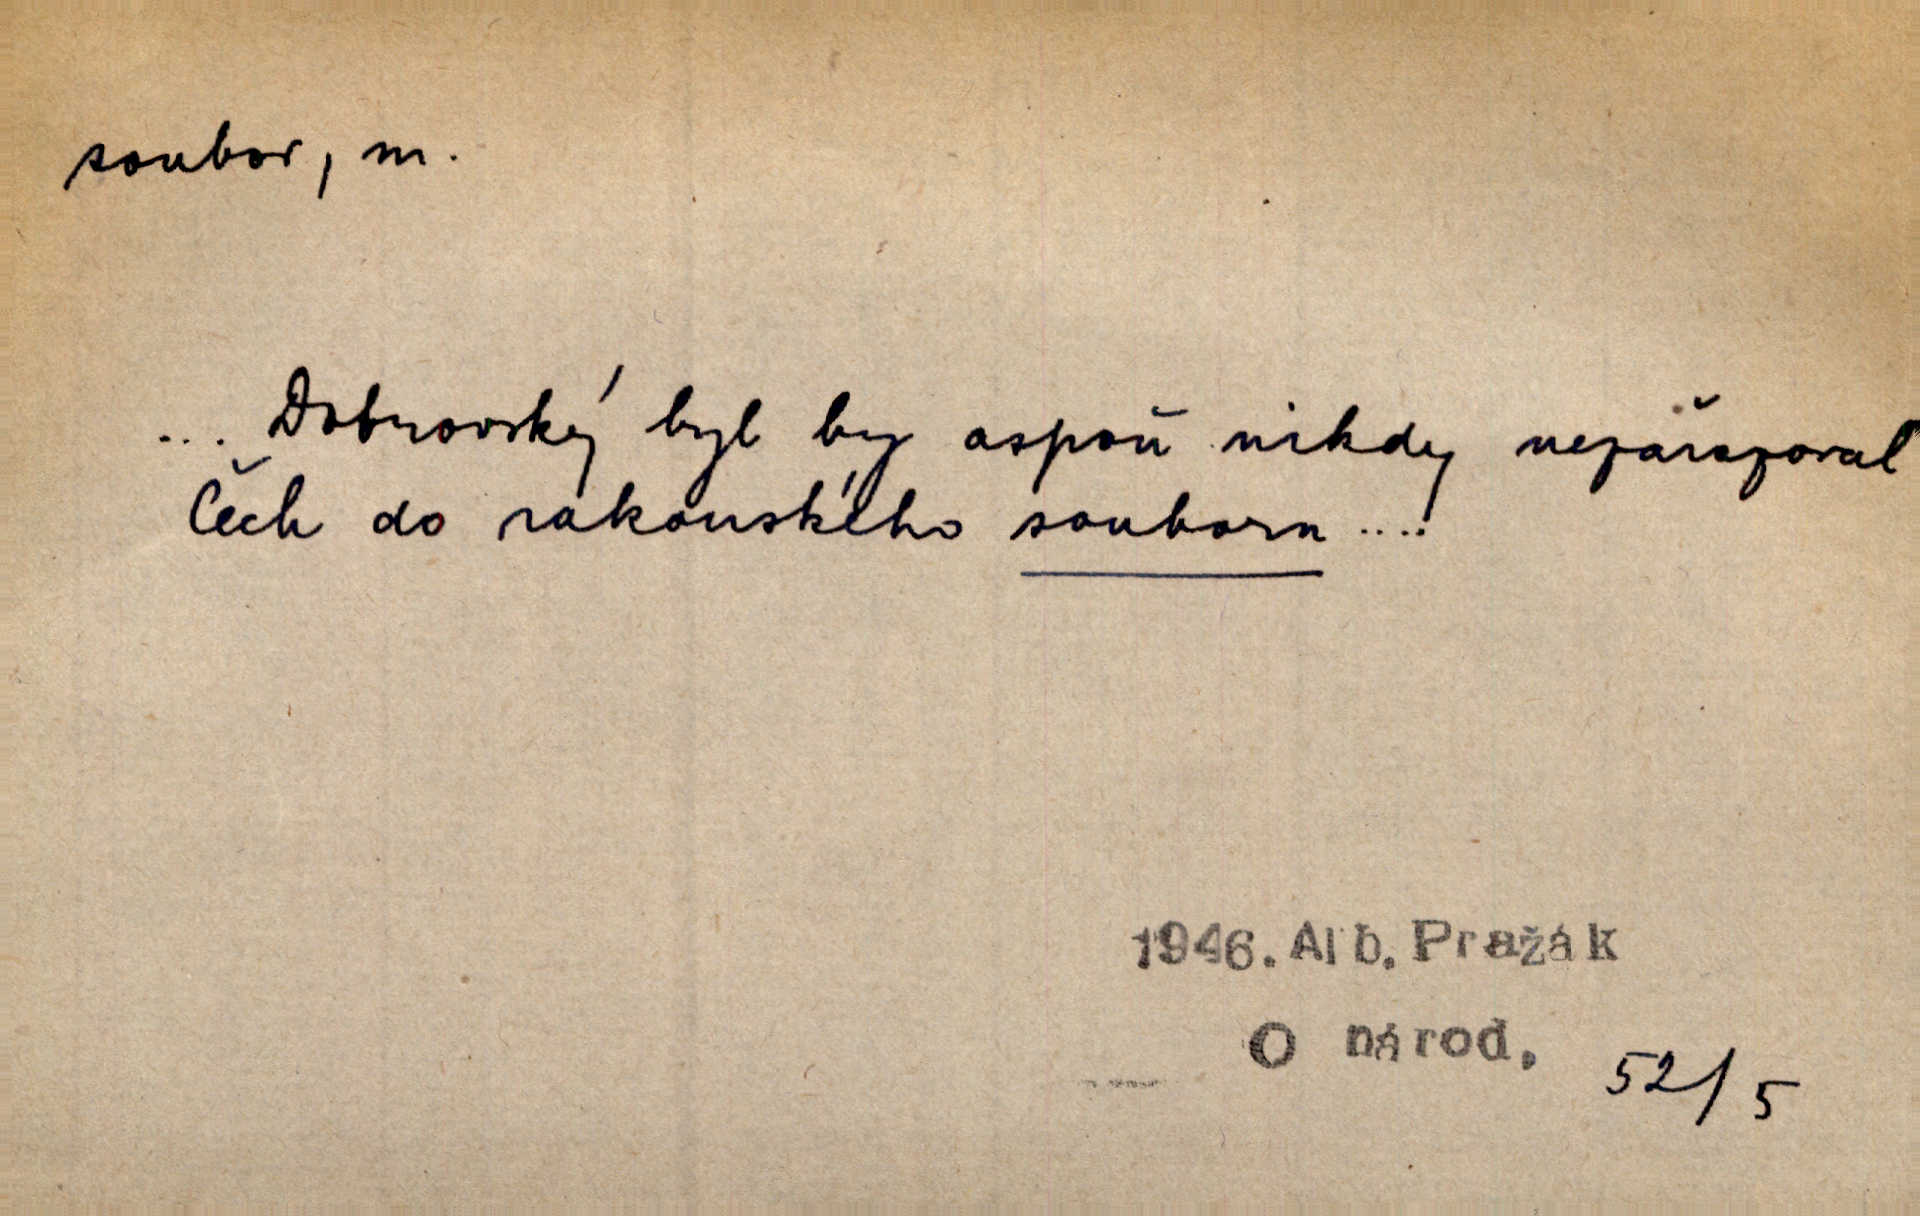 soubor, m.
... Dobrovský byl by aspoň nikdy nezařazoval
Čech do rakouského souboru ....
1946. Alb. Pražák
O národ.
52/5